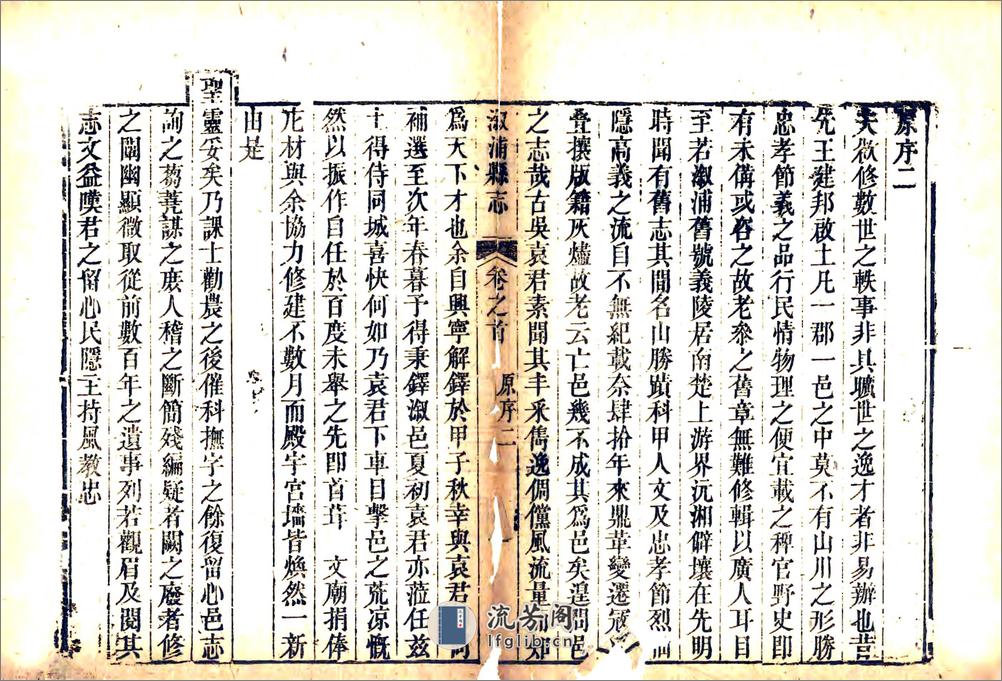 原序二
夫欲修數世之軼事非具曠世之逸才者非易辦也昔
先王建邦啟土凡一郡一邑之中莫不有山川之形勝
忠孝節義之品行民情物理之便宜載之稗官野史即
有未備或咨之故老參之舊章無難修輯以廣人耳目
至若溆浦舊號義陵居南楚上游界沅湘僻壤在先明
時聞有舊志其間名山勝蹟科甲人文及忠孝節烈
隱高義之流自不無紀載奈肆拾年來鼎革變遷寇
疊撰版籍灰燼故老云亡邑幾不成其為邑矣遑問邑
之志哉古吳袁君素聞其丰釆雋逸倜儻風流量
溆浦縣志 卷之首 原序二
為天下才也余自興寧解鐸於甲子秋幸與袁君
補選至次年春暮予得秉鐸溆邑夏初袁君亦蒞任茲
土得侍同城喜快何如乃袁君下車目擊邑之荒涼慨
然以振作自任於百度未舉之先即首葺 文廟捐俸
庀材與余協力修建不數月而殿宇宮墻皆煥然一新
由是
聖靈妥矣乃課士勸農之後催科撫字之餘復留心邑志
詢之蒭蕘謀之庶人稽之斷簡殘編疑者闕之廢者修
之闡幽顯微取從前數百年之遺事列若觀眉及閱其
志文益嘆君之留心民隱主持風教忠
流芳閣
lfglib.cn